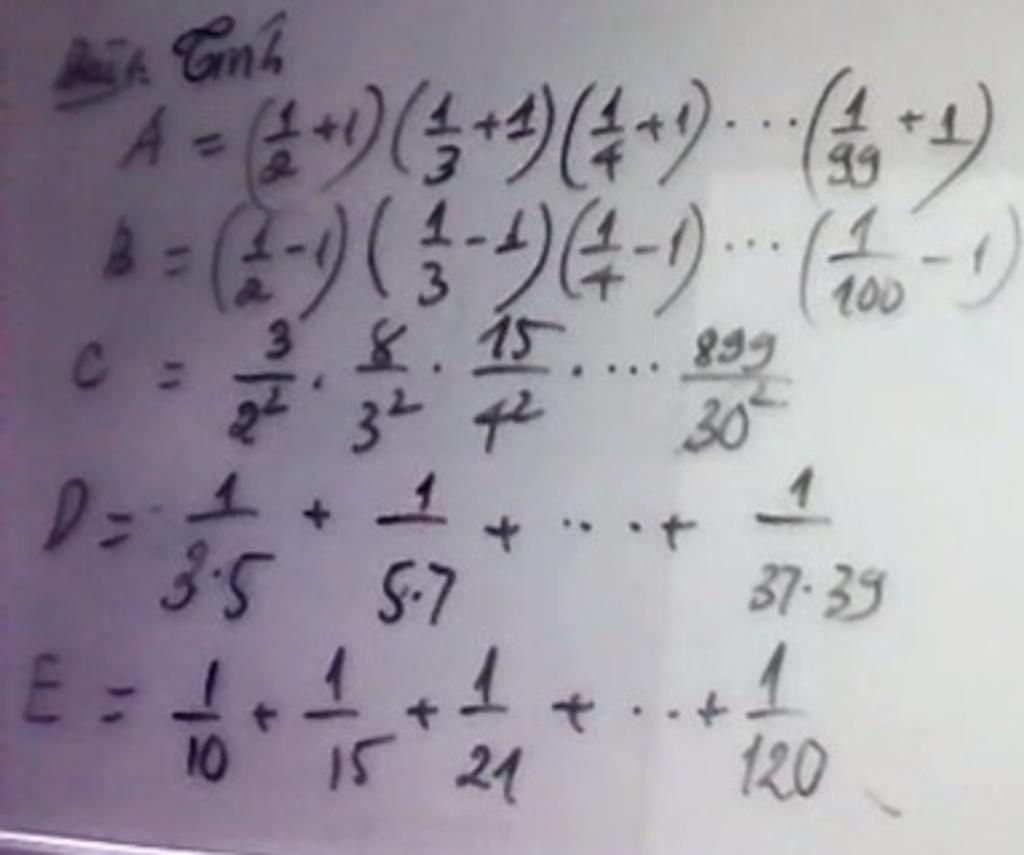 Tính
A = (1/2 + 1)(1/3 + 1)(1/4 + 1)....(1/99 + 1)
B = (1/2 - 1)(1/3 - 1)(1/4 - 1)...(1/100 - 1)
C = 3/2² . 8/3² . 15/4² .... 899/30²
D = 1/3.5 + 1/5.7 + ... + 1/37.39
E = 1/10 + 1/15 + 1/21 + ... + 1/120